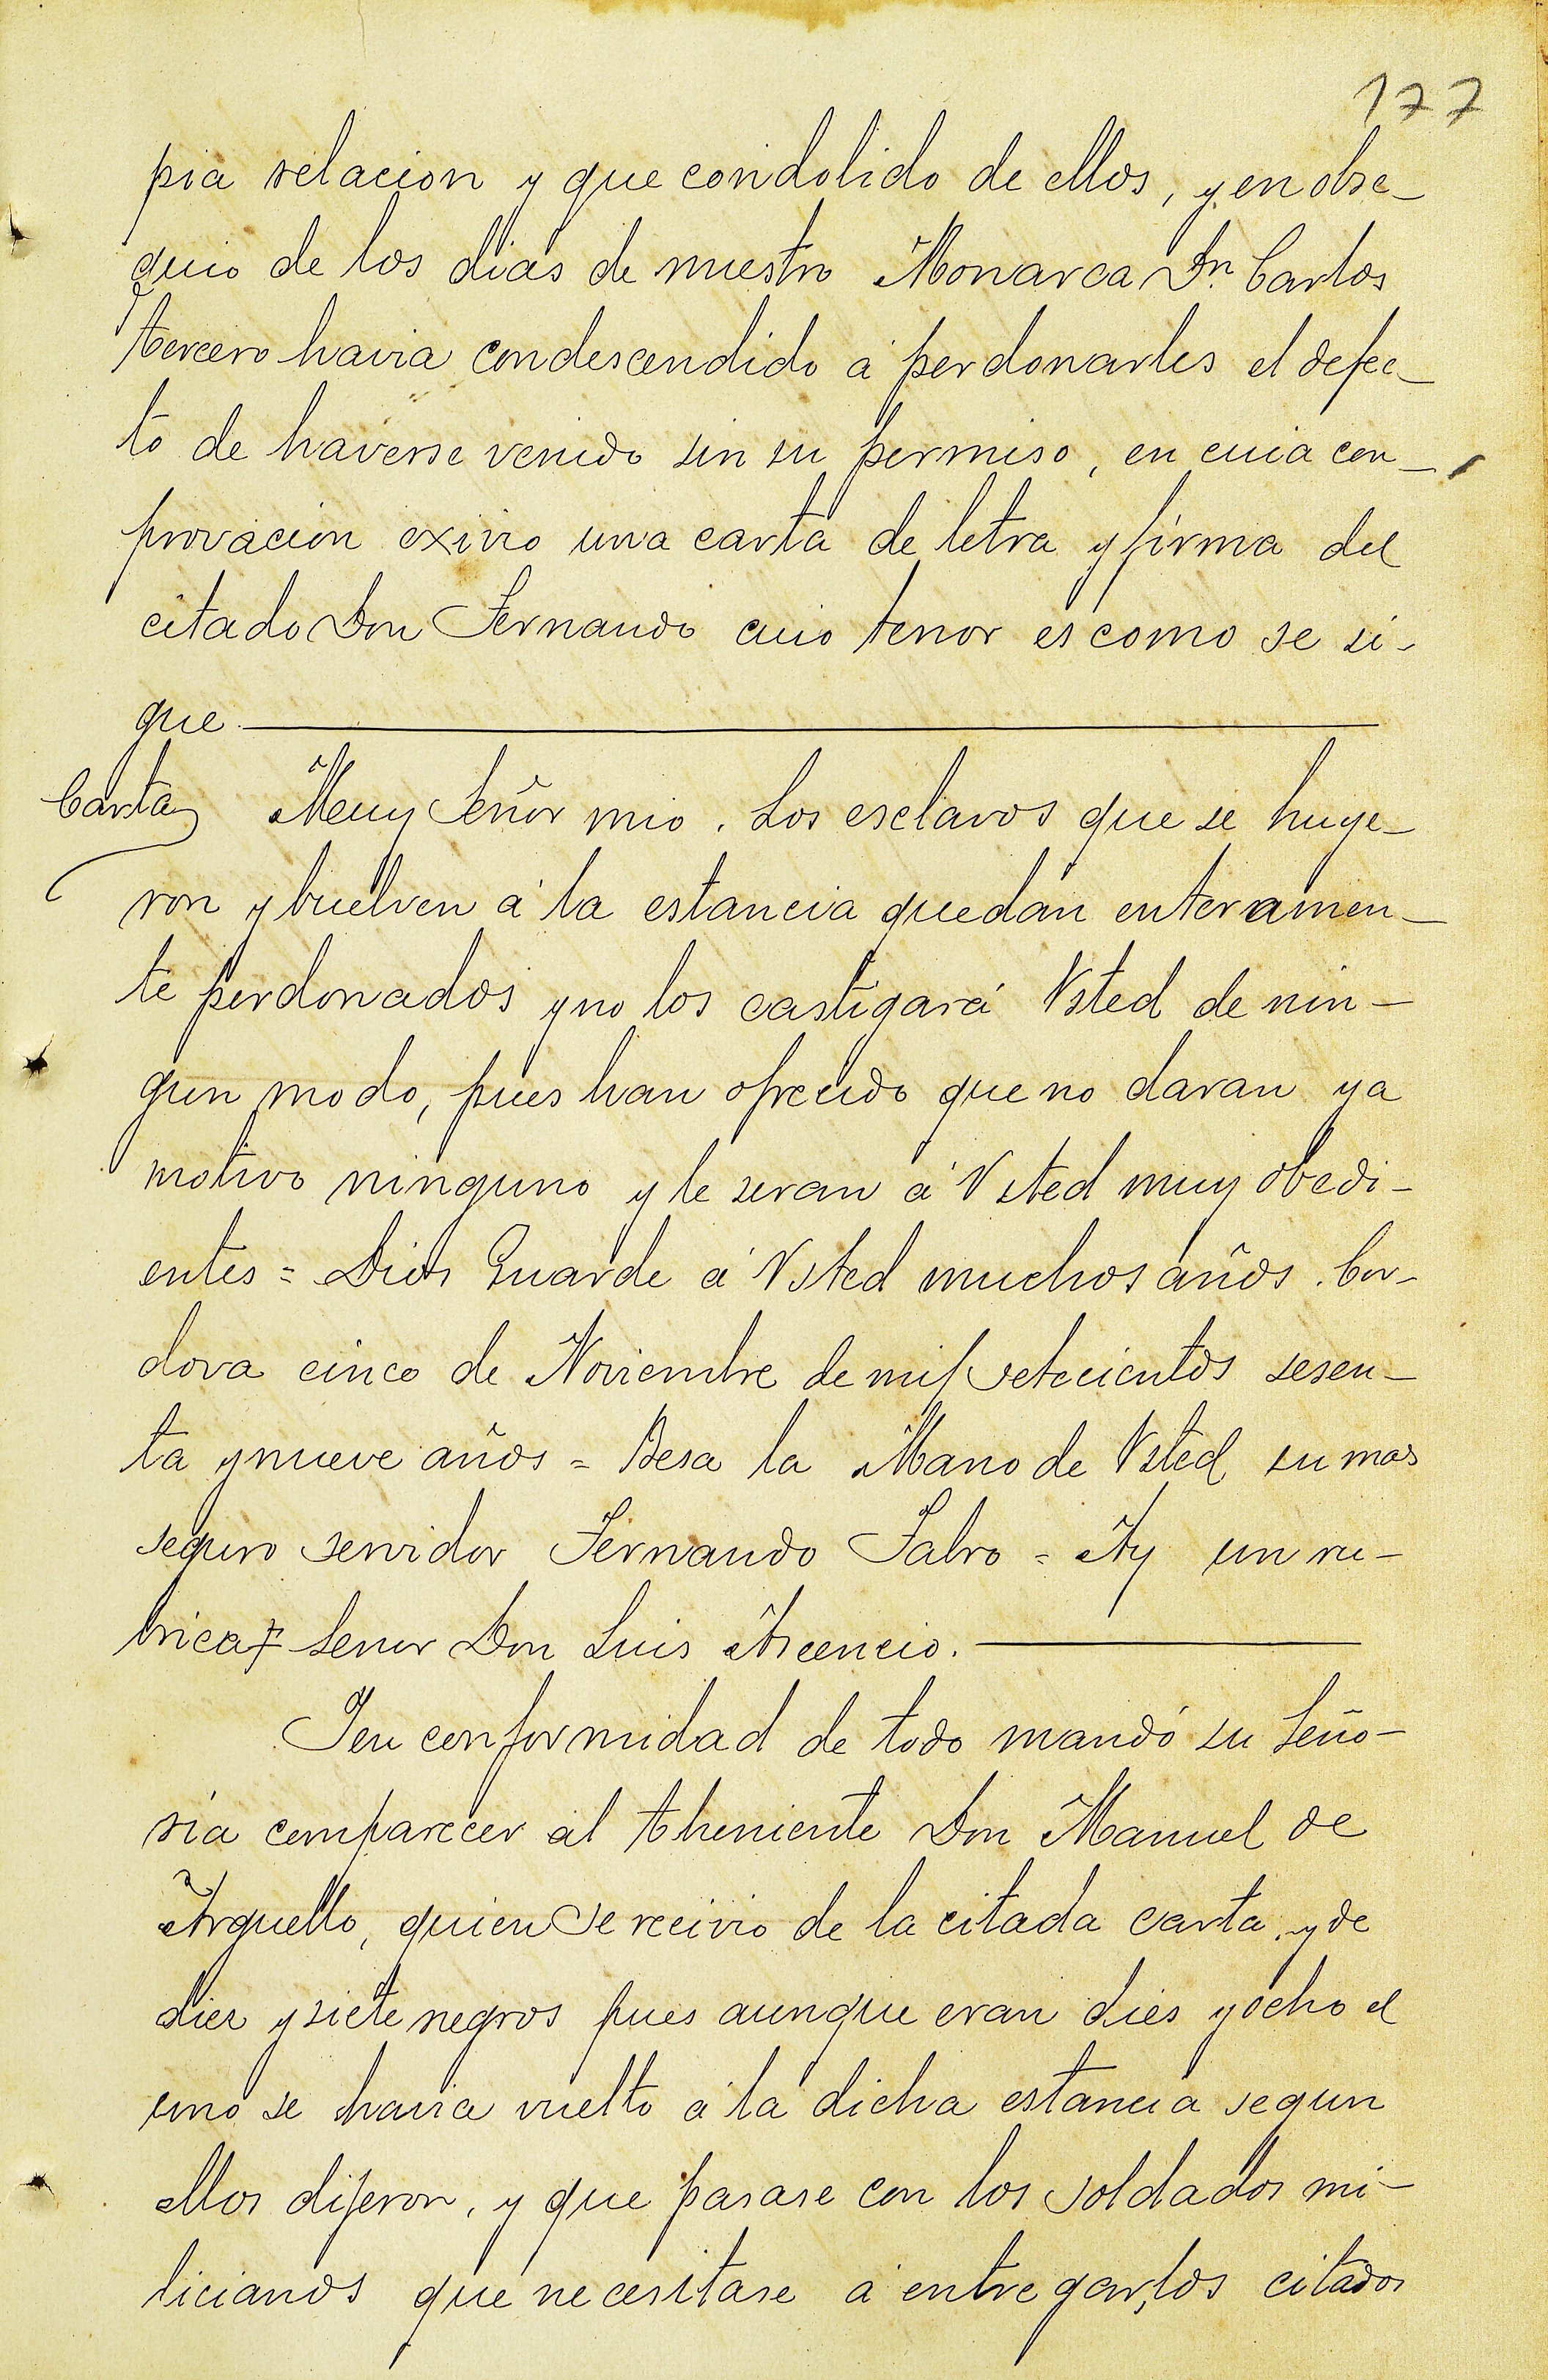 177
pia relacion y que condolido de ellos, y en obse-
quio de los dias de nuestro Monarca Dn. Carlos
tercero havia condescendido á perdonarles el defec-
to de haverse venido sin su permiso, en cuia con-
provacion exivio una carta de letra y firma del
citado Don Fernando cuio tenor es como se si-
gue
Carta Muy Señor mio. Los esclavos que se huye-
ron y buelven á la estancia quedan enteramen-
te perdonados y no los castigará Vsted de nin-
gun modo, pues han ofrecido que no daran ya
motivo ninguno y le seran á Vsted muy obedi-
entes = Dios Guarde á Vsted muchos años. Cor-
dova cinco de Noviembre de mil setecientos sesen-
ta y nueve años = Besa la Mano de Vsted su mas
seguro servidor Fernando Fabro = Ay un ru-
brica = Senor Don Luis Ascencio.
Y en conformidad de todo mandó su Seño-
ria comparecer al theniente Don Manuel de
Arguello, quien se recivio de la citada carta, y de
diez y siete negros pues aunque eran dies y ocho el
uno se havia vuelto á la dicha estancia segun
ellos dijeron, y que pasase con los soldados mi-
licianos que necesitase á entregar los citados